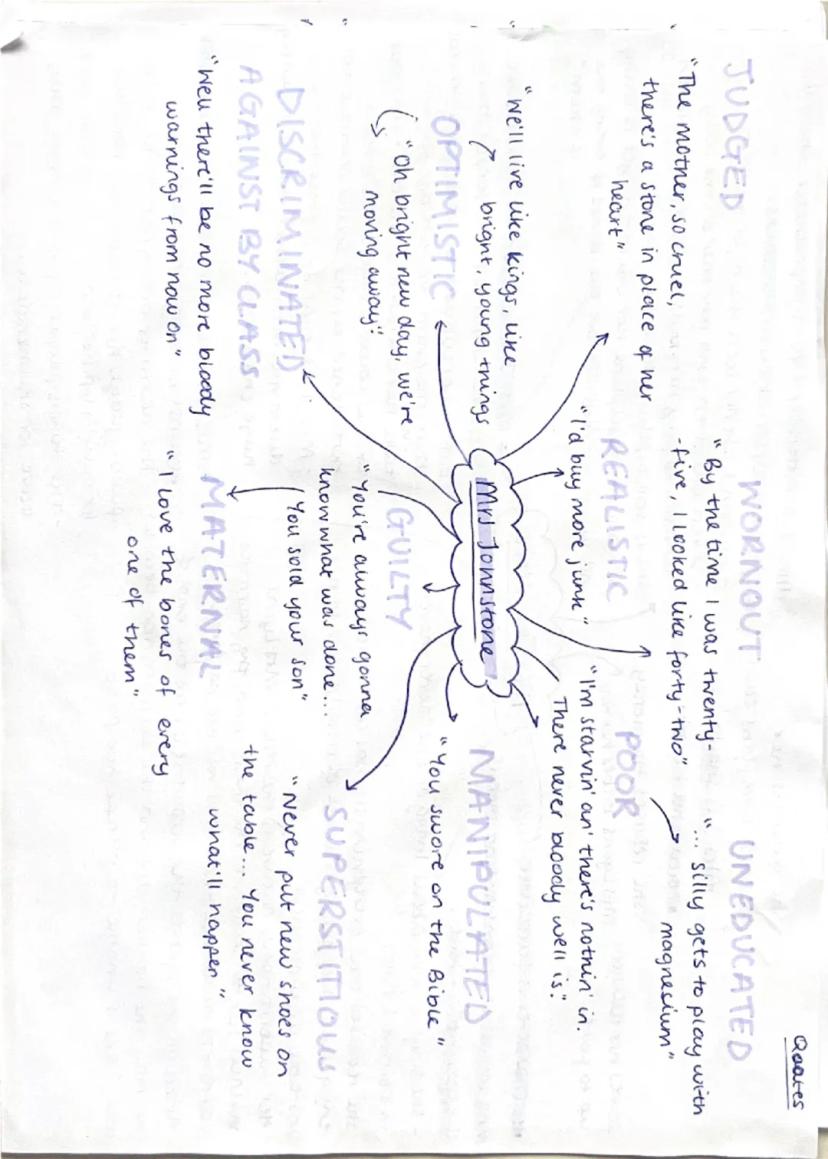 Quotes
JUDGED
"The mother, so cruel,
there's a stone in place of her
heart"
WORNOUT
"By the time I was twenty-
-five, I looked like forty-two"
UNEDUCATED
"... silly gets to play with
magnesium"
"We'll live like kings, like
bright, young things
OPTIMISTIC
"Oh bright new day, we're
moving away"
REALISTIC
"I'd buy more junk"
POOR
"I'm starvin' an' there's nothin' in.
There never bloody well is."
Mrs Johnstone
DISCRIMINATED
AGAINST BY CLASS
"Well there'll be no more bloody
warnings from now on"
GUILTY
"You're always gonna
know what was done...
You sold your son"
MANIPULATED
"You swore on the Bible"
MATERNAL
"I love the bones of every
one of them"
SUPERSTITIOUS
"Never put new shoes on
the table... You never know
what'll happen"